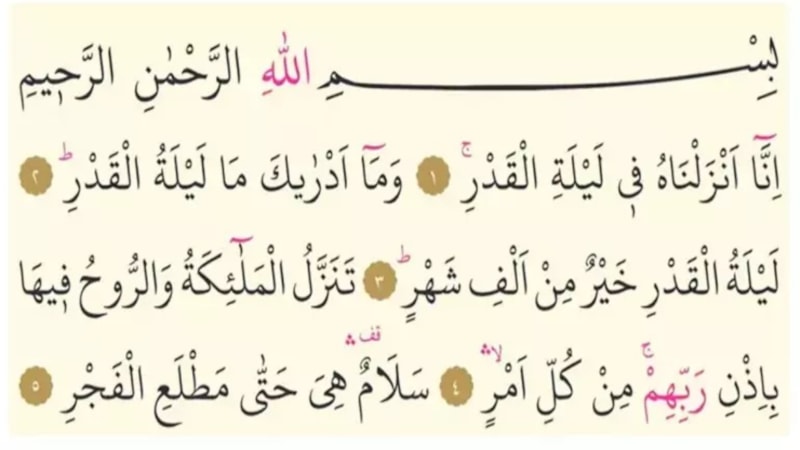 بِسْمِ اللّٰهِ الرَّحْمٰنِ الرَّح۪يمِ
اِنَّٓا اَنْزَلْنَاهُ ف۪ي لَيْلَةِ الْقَدْرِۚ ١ وَمَٓا اَدْرٰيكَ مَا لَيْلَةُ الْقَدْرِۜ ٢
لَيْلَةُ الْقَدْرِ خَيْرٌ مِنْ اَلْفِ شَهْرٍۜ ٣ تَنَزَّلُ الْمَلٰٓئِكَةُ وَالرُّوحُ ف۪يهَا
بِاِذْنِ رَبِّهِمْۚ مِنْ كُلِّ اَمْرٍۙۛ ٤ سَلَامٌ۠ۛ هِيَ حَتّٰى مَطْلَعِ الْفَجْرِ ٥